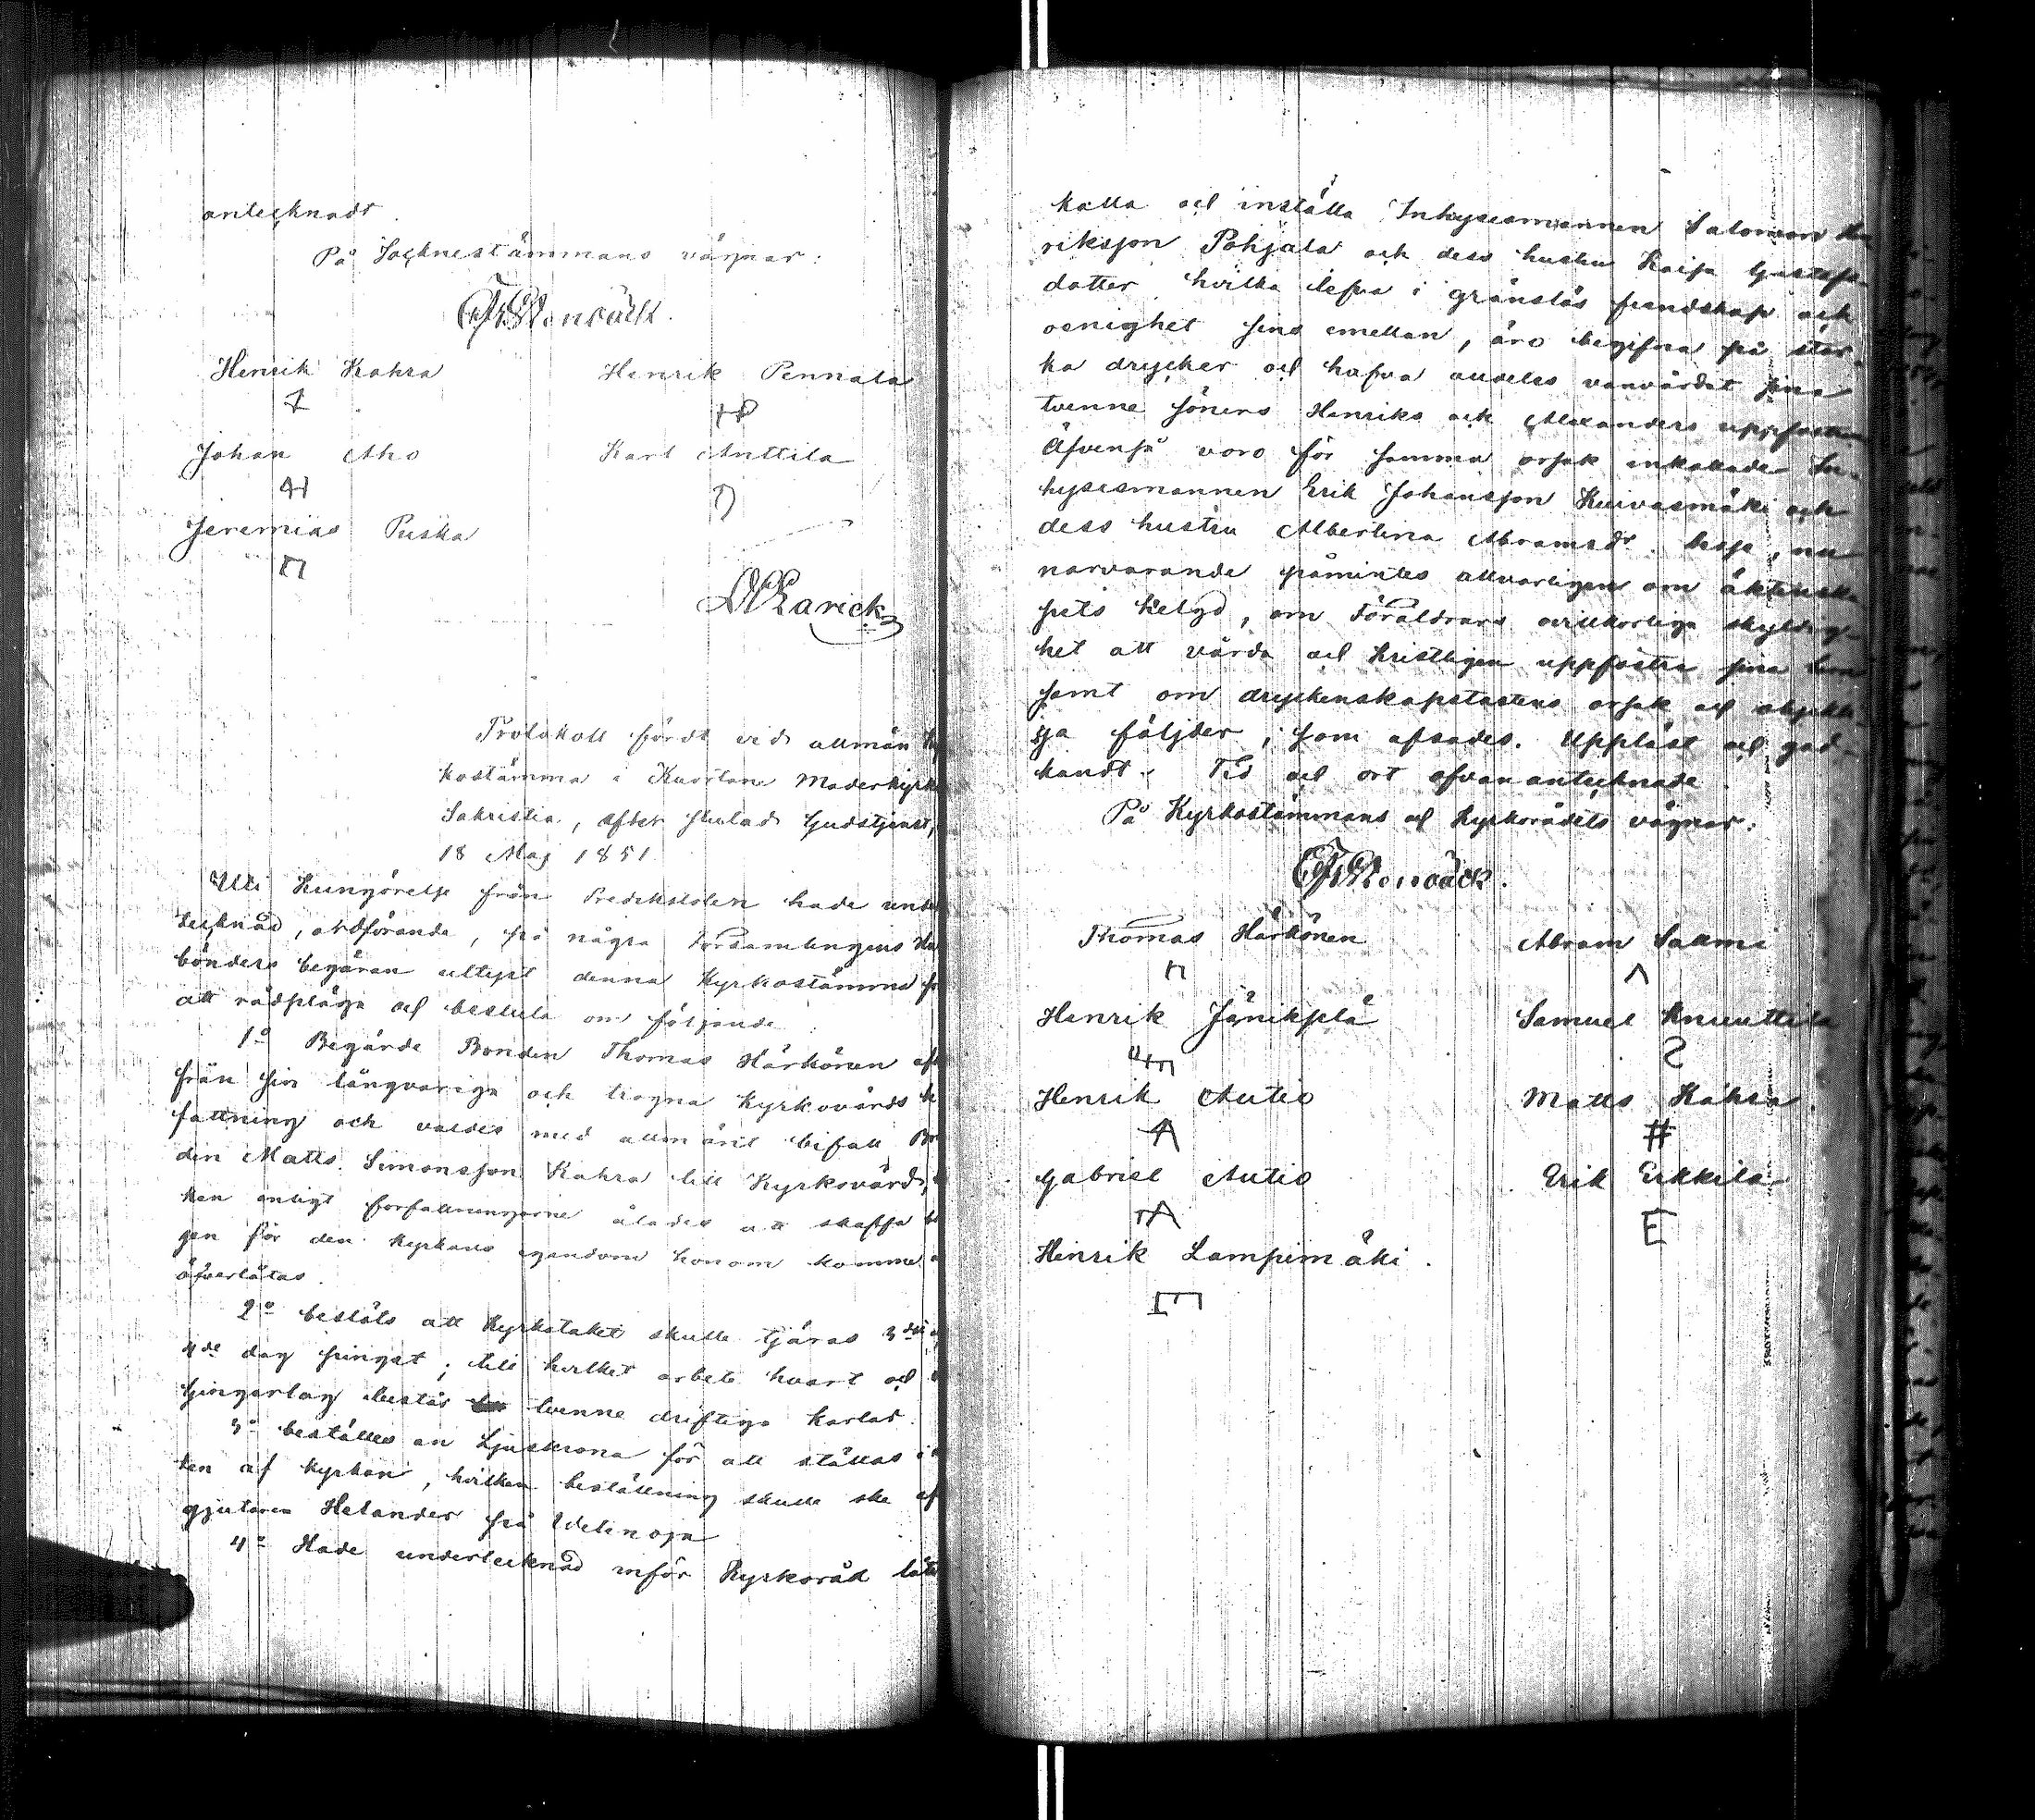 antecknadt.
På Socknestämmans vägnar:
Henrik Kahra
Henrik Pennala
Johan Aho
Karl Anttila
Jeremias Puska
Protokoll fördt vid allmän
kostämma i Kuortane Moderkyrk
Sakristia, efter slutad Gudstjenst,
18 Maj 1851.
Uti Kungörelse från Predikstolen hade unde
tecknad, ordförande, på några Församlingens
bönders begäran utlyst denna Kyrkostämma
att rådpläga och besluta om följande:
1o Begärde Bonden Thomas Härkönen
från sin långvariga och trogna Kyrkovärds
fattning och valdes med allmänt bifall
den Matts Simonsson Kahra till Kyrkovärd,
ken enligt författningarne ålades att skaffa
gen för den Kyrkans egendom honom komme
öfverlåtas.
2o beslöts att Kyrkotaket skulle tjäras 3dje
4de dag pingst; till hvilket arbete hvart och
tvenne driftiga karlar.
3o beställes en Ljuskrona för att ställas i
ten af kyrkan, hvilken beställning skulle ske af
gjutaren Helander på
4o Hade undertecknad inför Kyrkoråd låt
kalla och inställa Inhysesmannen Salomon
riksson Pohjala och dess hustru Kaisa Gustafs-
dotter, hvilka lefva i gränslös fiendskap och
oenighet sins emellan, äro begifna på star-
ka drycker och hafva alldeles vanvårdat sina
tvenne söners Henriks och Alexanders uppfostran
Äfvenså voro för samma orsak inkallade In-
hysesmannen Erik Johansson Kuivasmäki och
dess hustru Albertina Abramsdr. Desse, nu
närvarande påmintes allvarligen om äktenska
pets helgd, om Föräldrars ovillkorliga skyldig-
het att vårda och Kristligen uppfostra sina barn
samt om dryckenskapslastens orsak och
följder, som afsades. Uppläst och god-
kändt. Tid och ort ofvan antecknade.
På Kyrkostämmans och Kyrkorådets vägnar:
Thomas Härkönen
Abram Salmi
Henrik
Samuel Knuuttila
Henrik Autio
Matts Kahra
Gabriel Autio
Erik Erkkilä
Henrik Lampimäki.